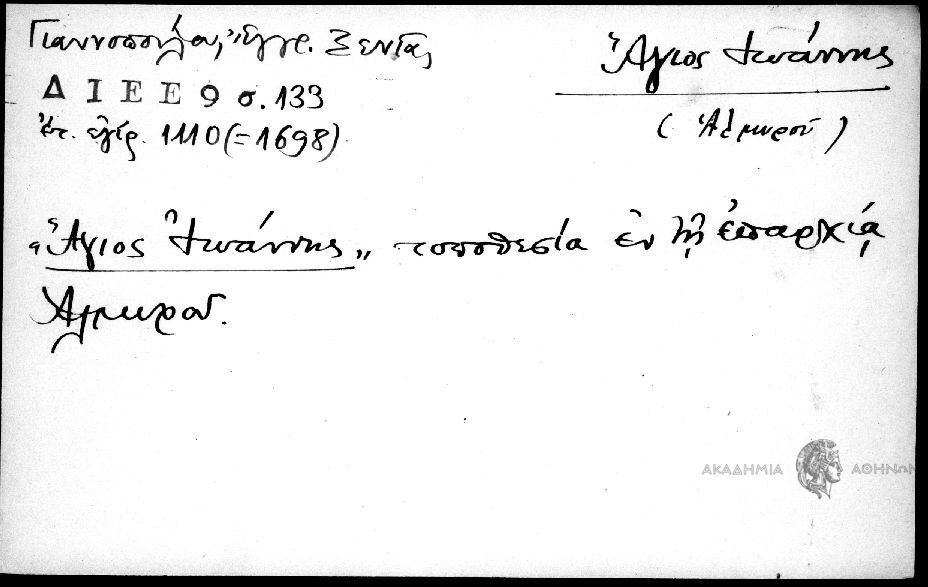 Γιαννοπούλου, Ἔγγρ. Ξενιᾶς
Ἅγιος Ἰωάννης
ΔΙΕΕ 9 σ. 133
(Ἁλμυροῦ)
ἔτ. ἐγίρ. 1110 (= 1698)
"Ἅγιος Ἰωάννης" τοποθεσία ἐν τῇ ἐπαρχίᾳ
Ἁλμυροῦ.
ΑΚΑΔΗΜΙΑ ΑΘΗΝΩΝ